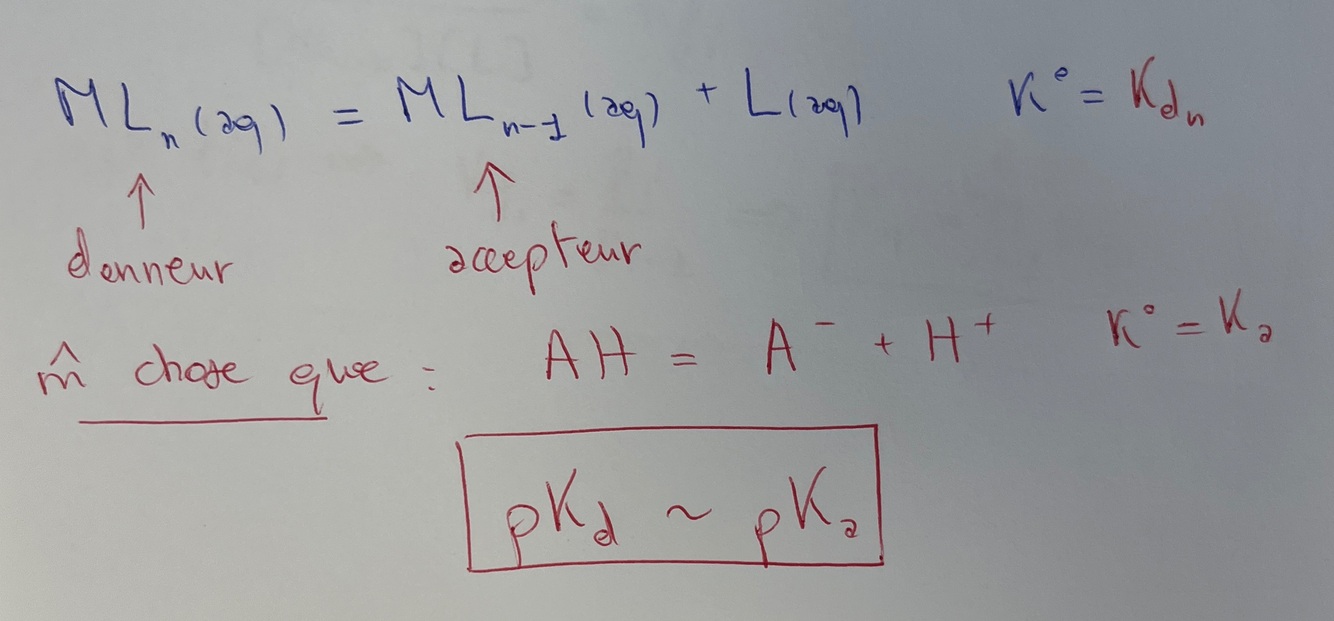 MLₙ (aq) = MLₙ₋₁ (aq) + L(aq) K° = K_dₙ
↑ ↑
donneur accepteur
m̂ chose que : AH = A⁻ + H⁺ K° = Kₐ
pK_d ~ pKₐ